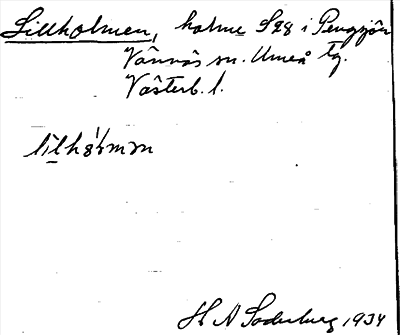 Lillholmen, holme S28 i Pengsjön
Vännäs sn. Umeå tg.
Västerb. l.
lìlhòlmən
H A Söderberg 1934